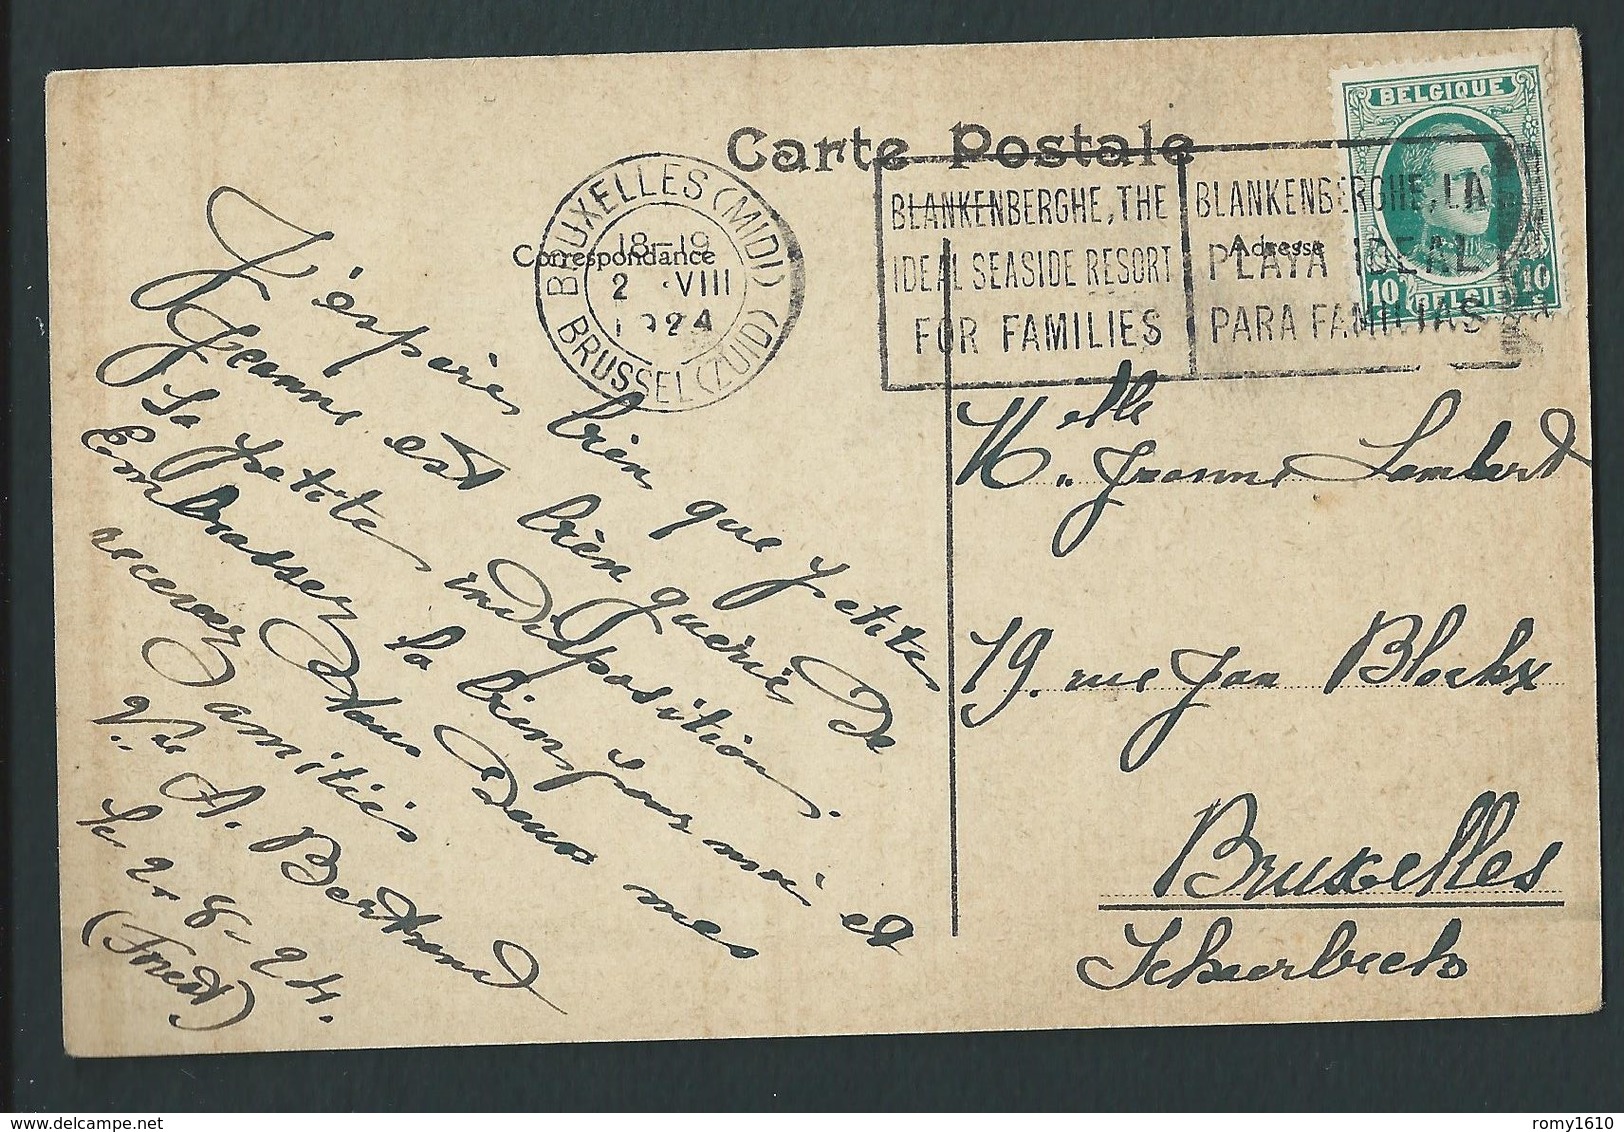 Carte Postale
Correspondance
Adresse
BRUXELLES (MIDI)
18-19
2 VIII
1924
BRUSSEL (ZUID)
BLANKENBERGHE, THE
IDEAL SEASIDE RESORT
FOR FAMILIES
BLANKENBERGHE, LA
PLAYA IDEAL
PARA FAMILIAS
BELGIQUE
10 10
BELGIE
J'espère bien que petite
Jeanne est bien guérie de
sa petite indisposition.
Embrassez la bien pour moi et
recevez tous deux mes
amitiés
Vve A. Bertrand
le 2-8-24.
Melle Jeanne Lambert
19. rue Jan Blockx
Bruxelles
Schaerbeek
romy1610